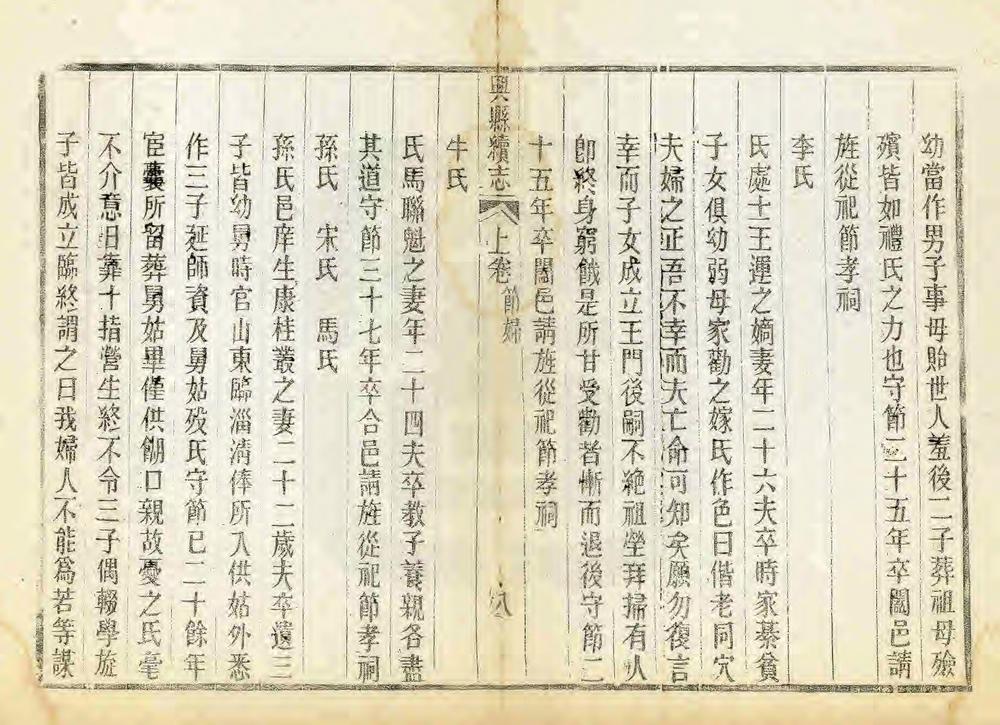 幼當作男子事毋貽世人羞後二子葬祖母殮
殯皆如禮氏之力也守節三十五年卒闔邑請
旌從祀節孝祠
李氏
氏處士王運之嫡妻年二十六夫卒時家綦貧
子女俱幼弱母家勸之嫁氏作色曰偕老同穴
夫婦之正吾不幸而夫亡命可知矣願勿復言
幸而子女成立王門後嗣不絶祖塋拜掃有人
卽終身窮餓是所甘受勸者慚而退後守節二
十五年卒闔邑請旌從祀節孝祠
興縣續志 上卷 節婦 八
牛氏
氏馬聯魁之妻年二十四夫卒教子養親各盡
其道守節三十七年卒合邑請旌從祀節孝祠
孫氏 宋氏 馬氏
孫氏邑庠生康桂叢之妻二十二歲夫卒遺三
子皆幼舅時官山東臨淄淸俸所入供姑外悉
作三子延師資及舅姑歿氏守節已二十餘年
宦囊所留葬舅姑畢僅供餬口親故憂之氏毫
不介意日靠十指營生終不令三子偶輟學旋
子皆成立臨終謂之曰我婦人不能爲若等謀